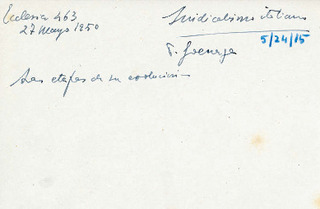 Ecclesia 463
27 Mayo 1950
Sindicalismo italiano
5/24/15
Las etapas de su evolución